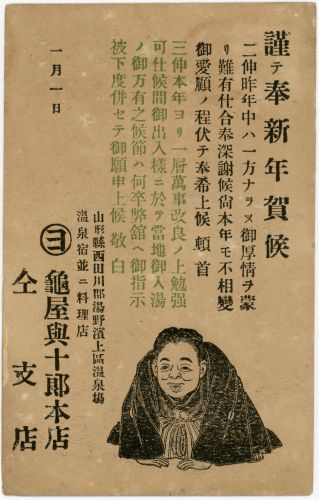 謹テ奉新年賀候
二伸昨年中ハ一方ナラヌ御厚情ヲ蒙
リ難有仕合奉深謝候尙本年モ不相變
御愛顧ノ程伏テ奉希上候 頓首
三伸本年ヨリ一層萬事改良ノ上勉强
可仕候間御出入樣ニ於テ當地御入湯
ノ御方有之候節ハ何卒弊舘ヘ御指示
被下度併セテ御願申上候 敬白
一月一日
山形縣西田川郡湯野濱上區溫泉場
溫泉宿並ニ料理店
ヨ 龜屋與十郎本店
仝 支店